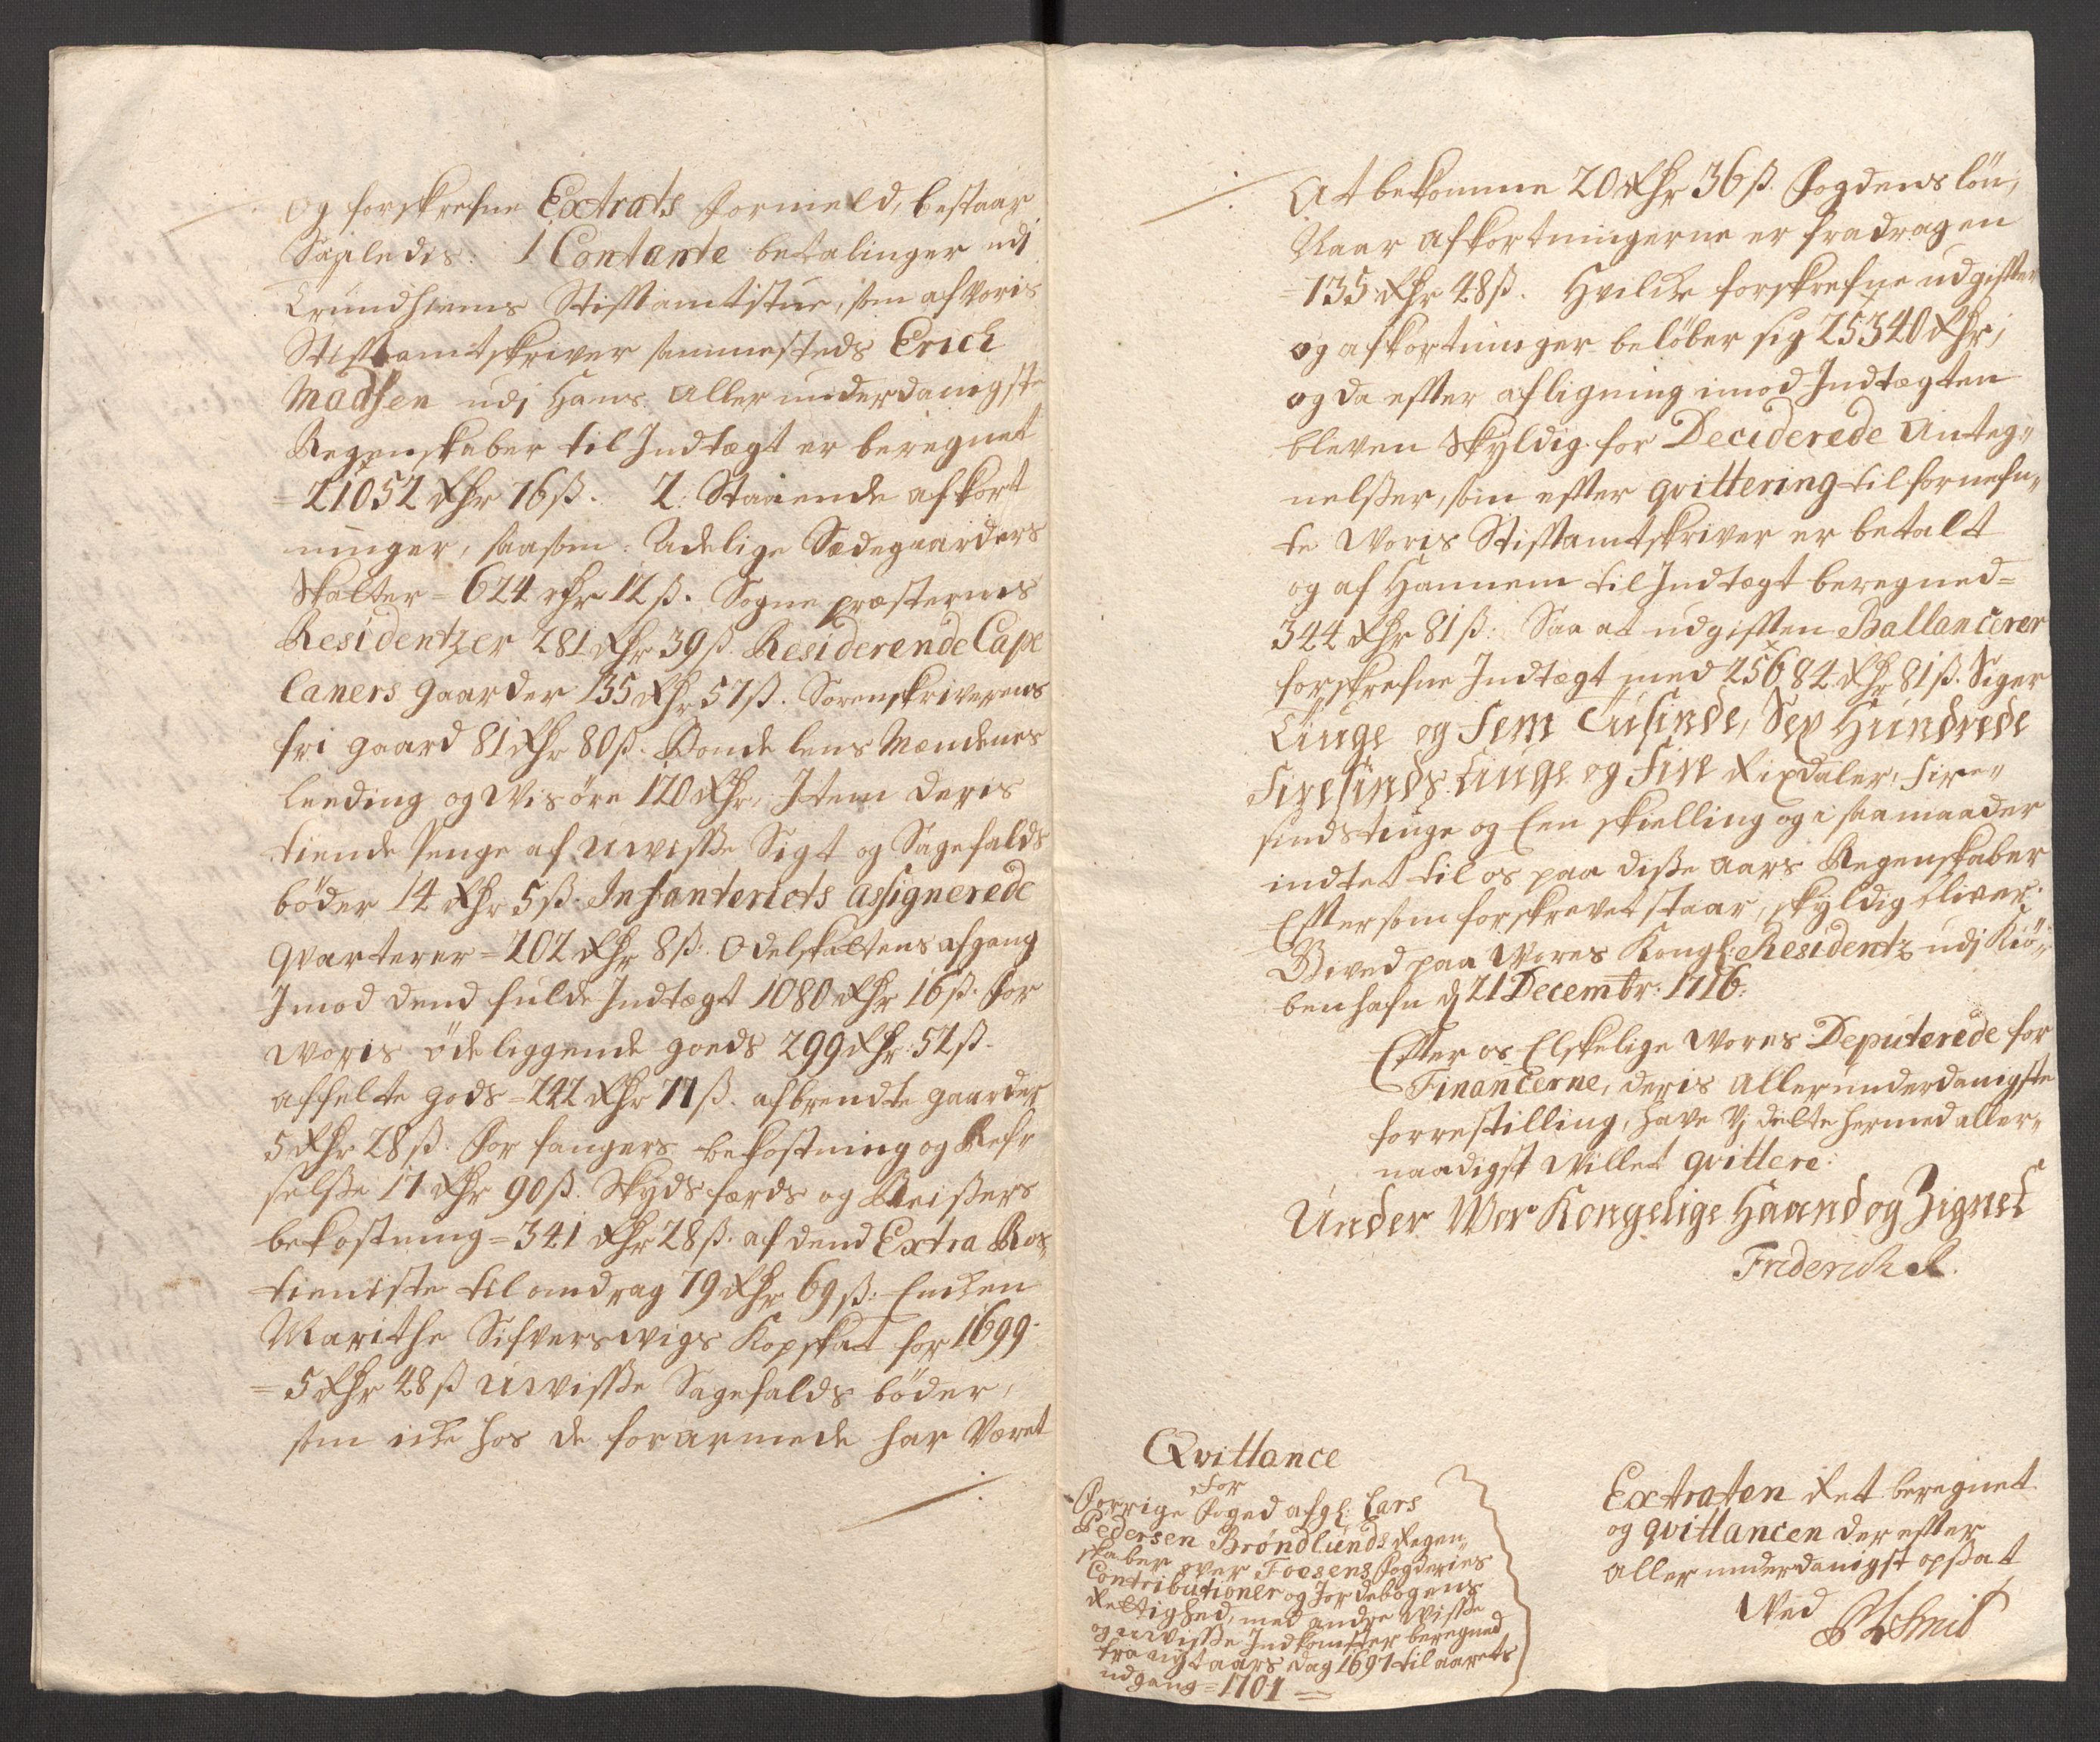 og forskrefne Extrats formeld, bestaar
Saaledes: 1 Contante betalinger udj
Trundhiems Stiftamtstue, som af Voris
Stiftamtskriver sammesteds Erich
Madsen udj Hans Allerunderdanigste
Regenskaber til Indtægt er beregnet
= 21052 Rdr 76 ß. 2: Staaende afkort
ninger, saasom: Adelige Sædegaarders
Skatter = 624 rdr 12 ß. Sogne præsternes
Residentzer 281 Rdr 39 ß. Residerende Cape
laners gaarder 135 Rdr 57 ß. Sorenskriverens
fri gaard 81 Rdr 80 ß. Bonde lens Mændenes
Leeding og Visöre 120 Rdr, Item deris
tiende Penge af Uvisse Sigt og Sagefalds
böder 14 Rdr 5 ß. Infanteriets Assignerede
Qvarterer = 202 Rdr 8 ß. Odelskattens afgang
Imod dend fulde Indtægt 1080 Rdr 16 ß. for
Woris ödeliggende goeds 299 Rdr: 52 ß.
affelte gods = 242 Rdr 77 ß. afbrendte gaarder
5 Rdr 28 ß. for fangers bekostning og Refs
selse 17 Rdr 90 ß. Skyds færds og Reisers
bekostning = 341 Rdr 28 ß. af dend Extra Ros
tieniste tilandrag 79 Rdr 69 ß: Encken
Marithe Sifverswigs Kopskat for 1699
= 5 Rdr 48 ß Uvisse Sagefalds böder,
som icke hos de forarmede har Været
At bekomme 20 Rdr 36 ß. Fogdens lön,
Naar afkortningerne er fradragen
= 135 Rdr 48 ß. Hvilcke forskrefne udgifter
og afkortninger beløber sig 25340 Rdr,
og da efter afligning imod Indtægten
bleven skyldig for Deciderede Anteg-
nelsser, som efter qvittering til fornefn-
te Woris Stiftamtskriver er betalt
og af Hannem til Indtægt beregned =
344 Rdr 81 ß: Saa at udgiften Ballancerer
forskrefne Indtægt med 25684 Rdr 81 ß. Siger
Tiuge og Fem Tusinde, Sex Hundrede
Firesinds Tiuge og Fire Rixdaler, Fire-
sindstiuge og Een skielling og i saamaader
indtet til os paa disse Aars Regenskaber
Eftersom forskrevet staar, skyldig bliver.
Gived paa Vores Kongl: Residentz udj Kiö-
benhafn d 21 Decembr: 1716.
Efter os Elskelige Vores Deputerede for
Financerne, deris Allerunderdanigste
forrestilling, have Vj dette hermed aller-
naadigst Villet qvittere:
Under Vor Kongelige Haand og Zignet
Friderich R.
Qvittance
for
Forrige Foged afgl: Lars
Pedersen Bröndlunds Regen-
skaber over Foesens Fogderies
Contributioner og Jordebogens
Rettighed, med andre Visse
og uvisse Indkomster beregned
fra nytaars dag 1691 til aarets
udgang = 1701 =
Extraten Ret beregnet
og qvittancen der efter
Allerunderdanigst opsat
Ved